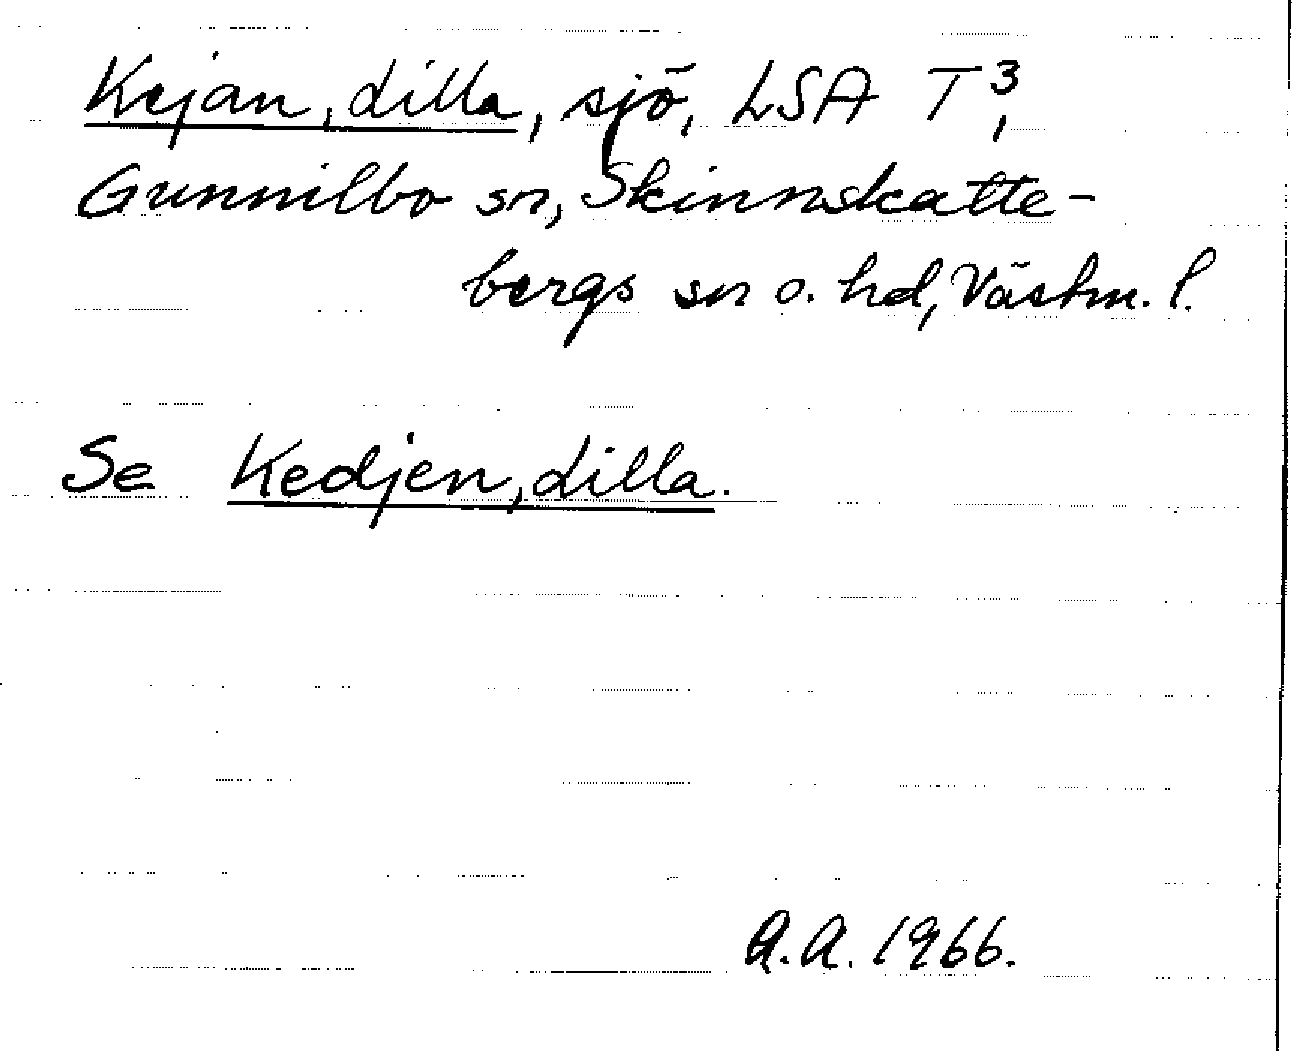 Kejan, Lilla, sjö, LSA T³,
Gunnilbo sn, Skinnskatte-
bergs sn o. hd, Västm. l.
Se Kedjen, Lilla.
A.A. 1966.